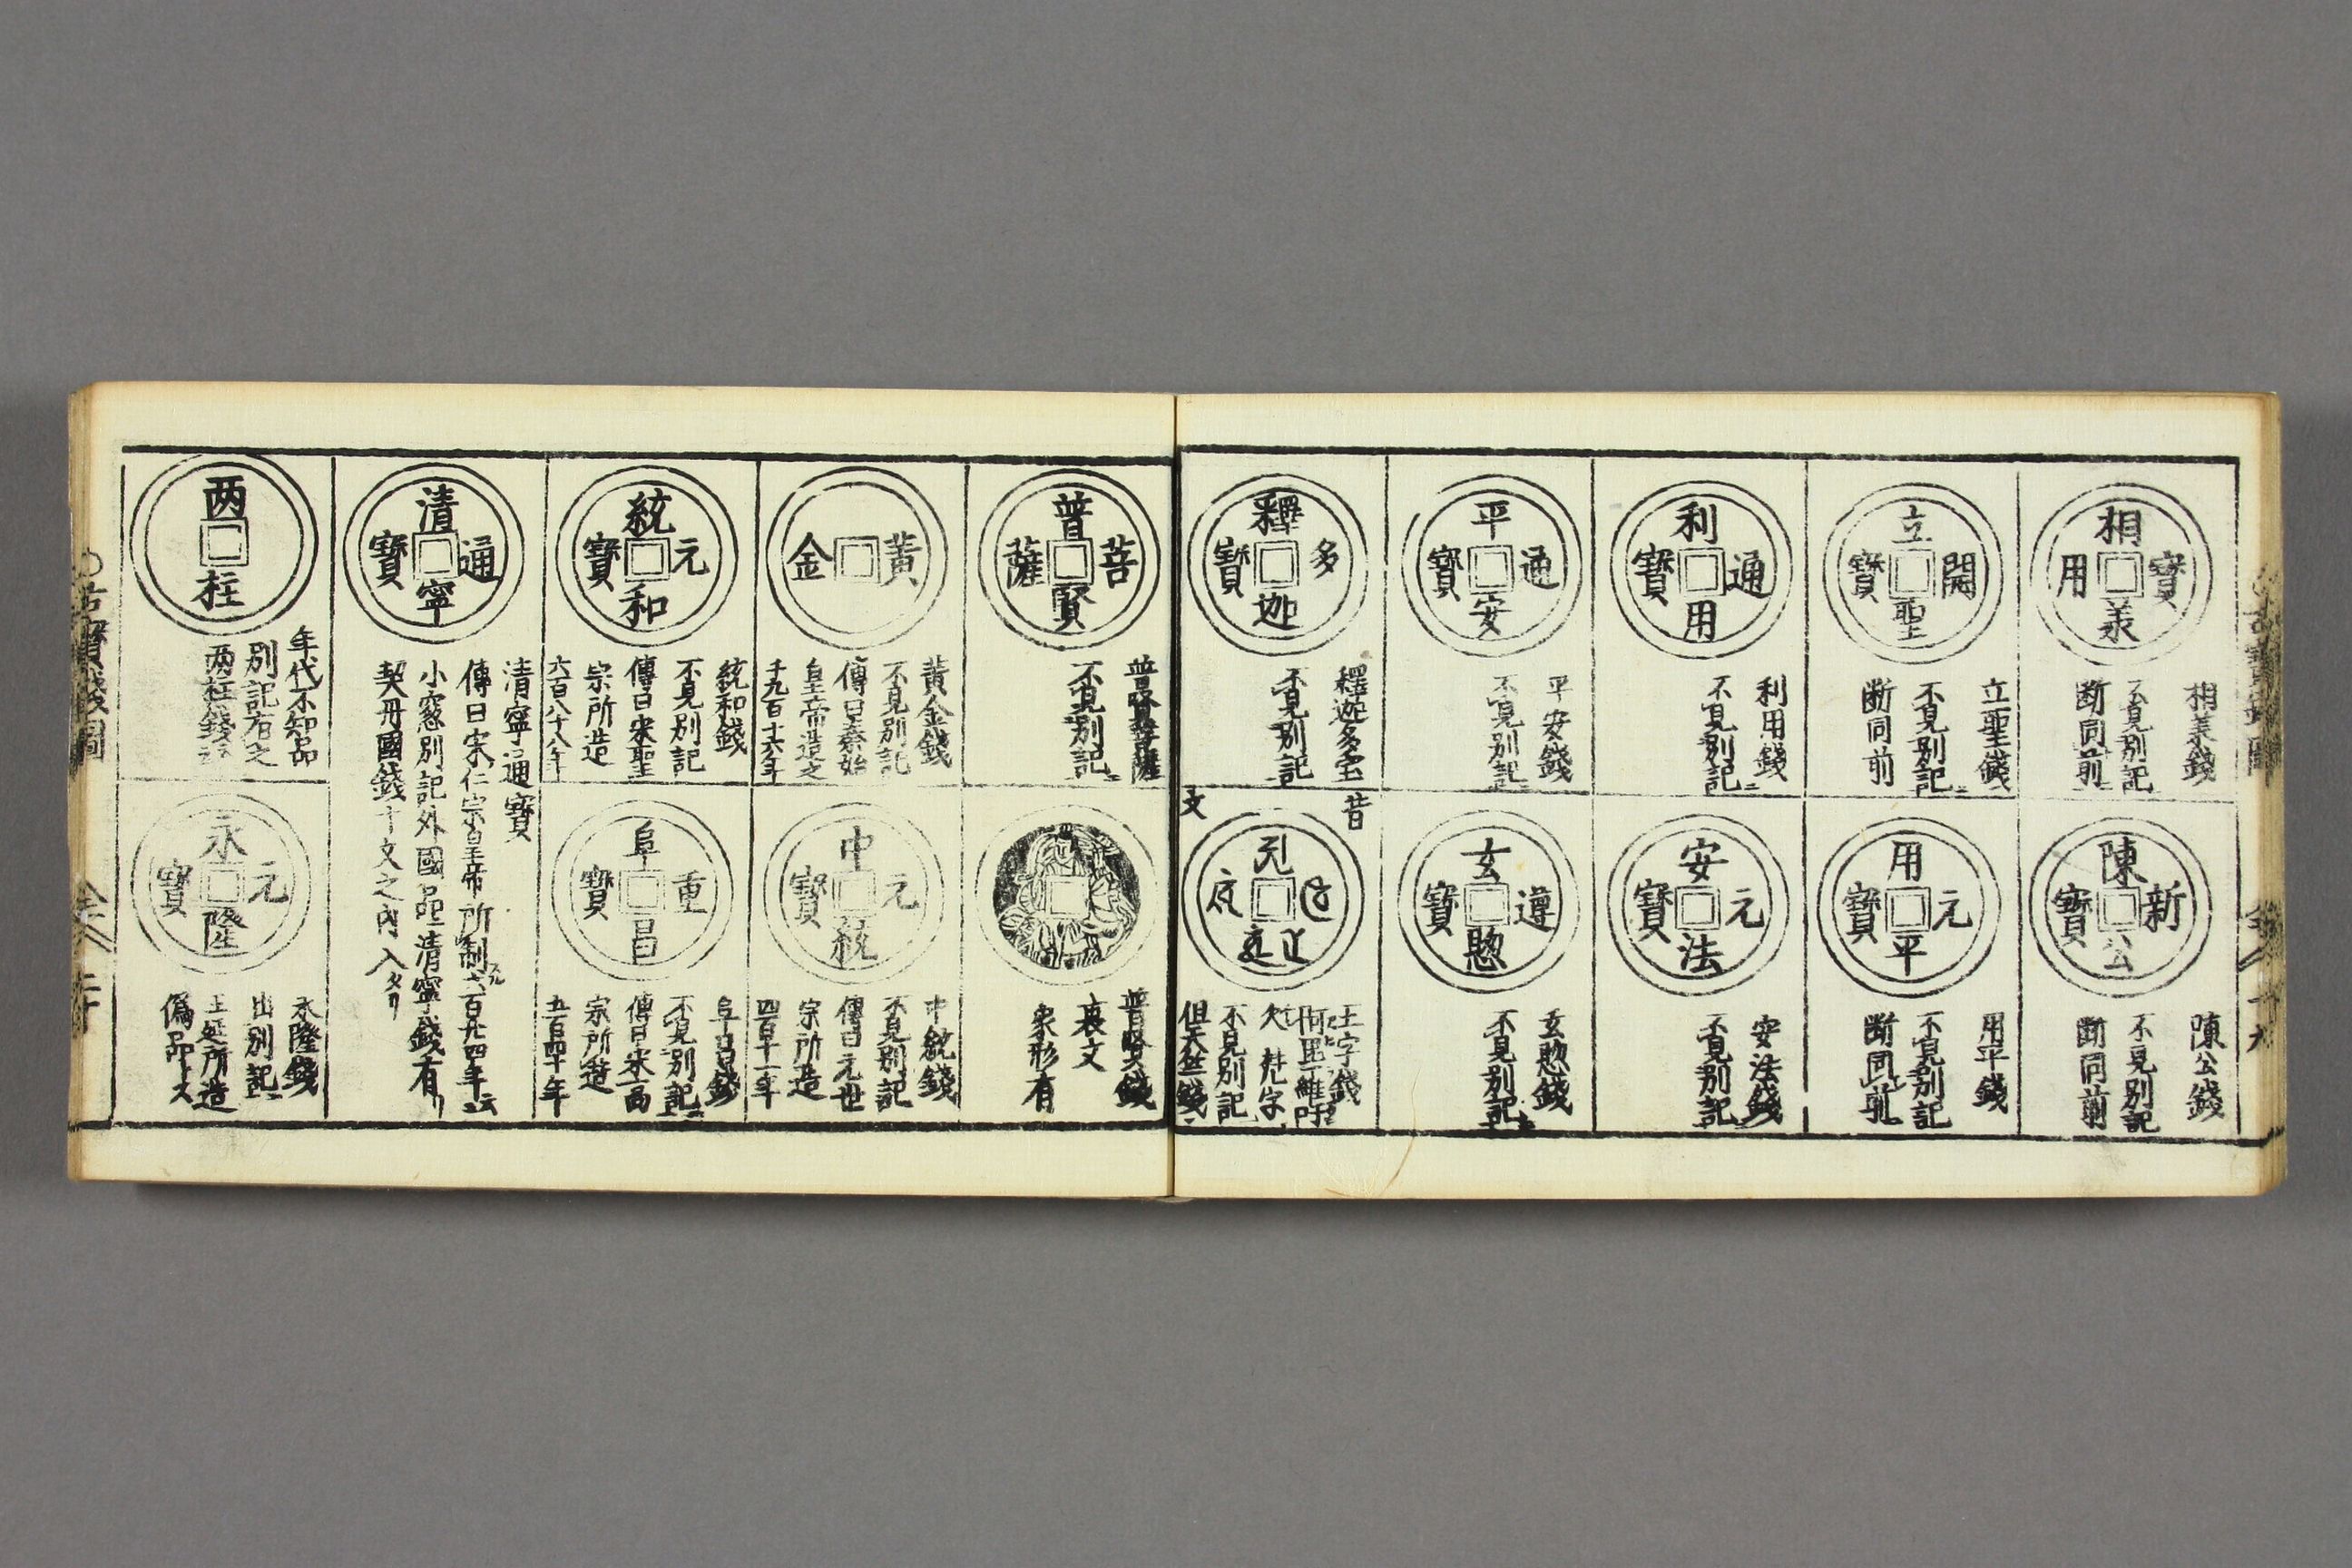 相寶羨用
相羨錢
不見別記
断同前
陳新公寶
陳公錢
不見別記
断同前
立開聖寶
立聖錢
不見別記ニ
断同前
用元平寶
用平錢
不見別記
断同前
利通用寶
利用錢
不見別記ニ
安元法寶
安法錢
不見別記ニ
平通安寶
平安錢
不見別記ニ
玄遵惣寶
玄惣錢
不見別記ニ
釋多迦寶
釋迦多宝
不見別記
昔
文
不見別記
但天竺錢
普菩賢薩
普賢菩薩
不見別記ニ
普賢錢
裏文
象形有
黃金
黃金錢
不見別記
傳曰秦始
皇帝造之
千九百十六年
中元統寶
中統錢
不見別記
傳曰元世
宗所造
四百十一年
統元和寶
統和錢
不見別記
傳曰宋聖
宗所造
六百八十八年
阜重昌寶
阜昌錢
不見別記ニ
傳曰宋高
宗所造
五百四十年
清通寧寶
清寧通寶
傳曰宋仁宗皇帝所制スル六百廿四年ニ云
小窓別記外國品清寧錢有リ
契丹國錢十文之內入タリ
两柱
年代不知品
別記有之
两柱錢云
永元隆寶
永隆錢
出別記ニ
王延所造
偽品ス